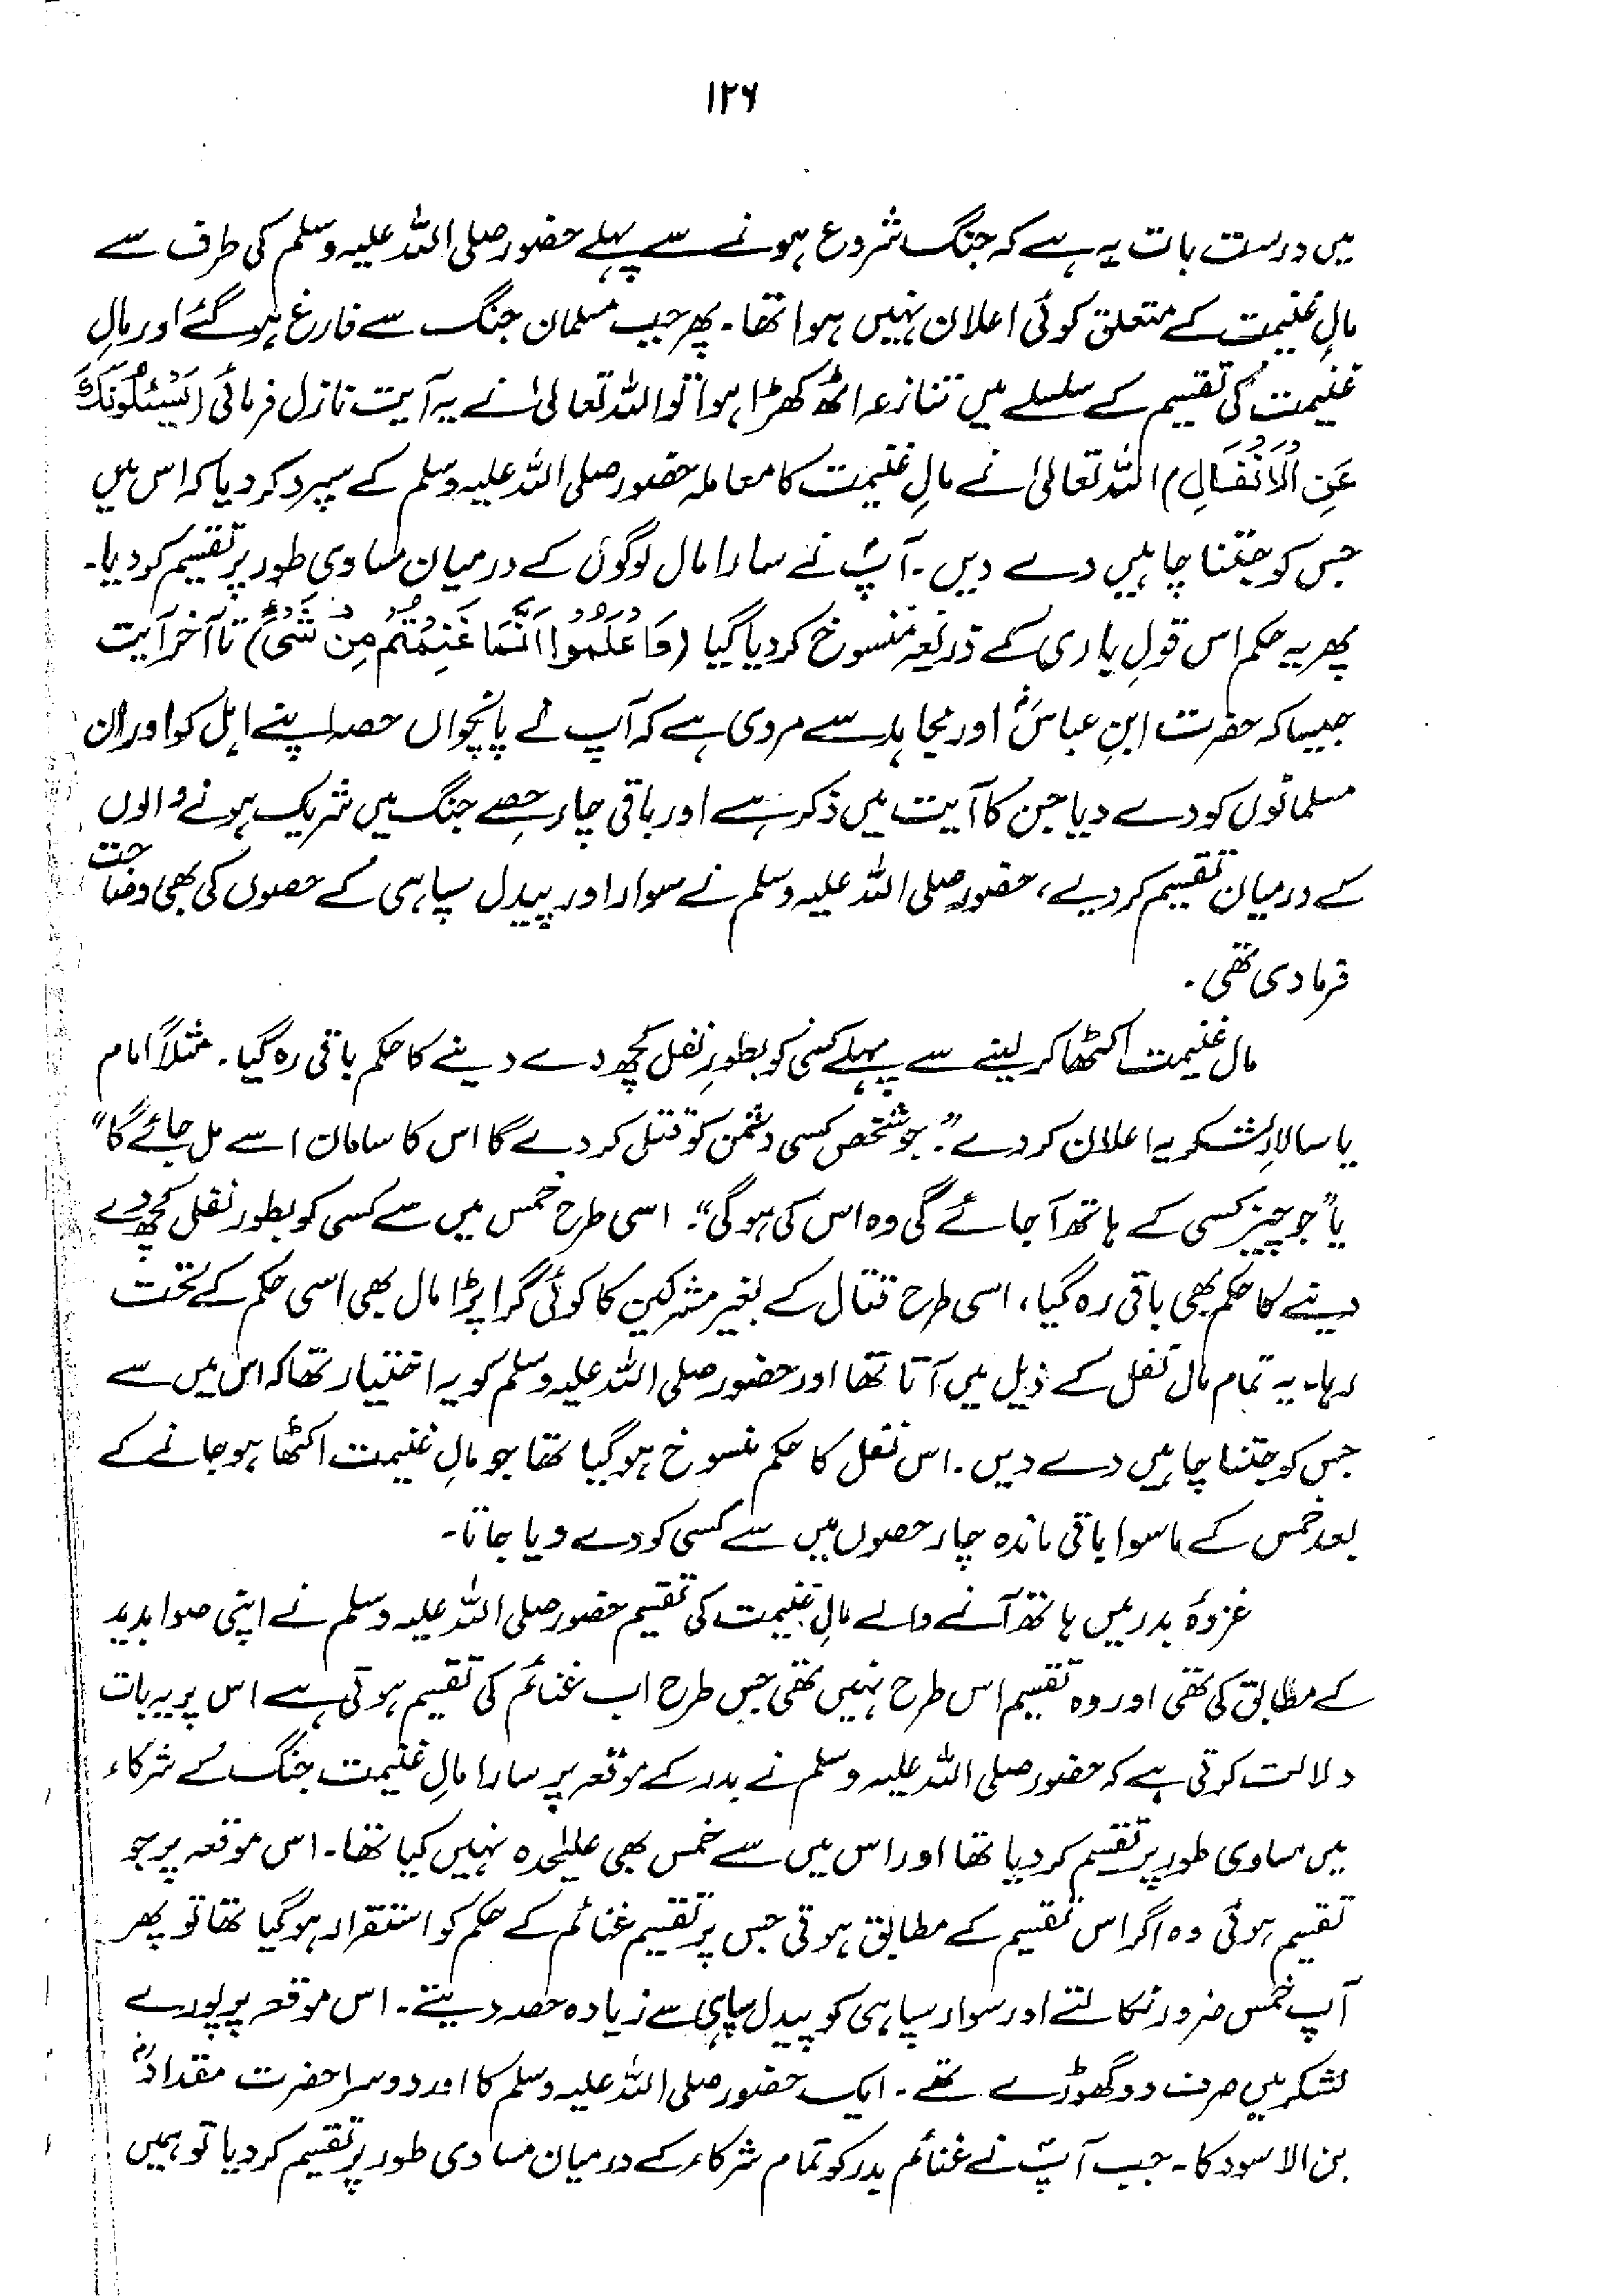 ۱۲۶
میں درست بات یہ ہے کہ جنگ شروع ہونے سے پہلے حضور صلی اللہ علیہ وسلم کی طرف سے
مالِ غنیمت کے متعلق کوئی اعلان نہیں ہوا تھا۔ پھر جب مسلمان جنگ سے فارغ ہو گئے اور مالِ
غنیمت کی تقسیم کے سلسلے میں تنازعہ اٹھ کھڑا ہوا تو اللہ تعالیٰ نے یہ آیت نازل فرمائی (یَسْئَلُوْنَكَ
عَنِ الْاَنْفَالِ) اللہ تعالیٰ نے مالِ غنیمت کا معاملہ حضور صلی اللہ علیہ وسلم کے سپرد کر دیا کہ اس میں
جس کو جتنا چاہیں دے دیں۔ آپؐ نے سارا مال لوگوں کے درمیان مساوی طور پر تقسیم کر دیا۔
پھر یہ حکم اس قولِ باری کے ذریعہ منسوخ کر دیا گیا (وَاعْلَمُوْا اَنَّمَا غَنِمْتُمْ مِنْ شَیْءٍ) تا آخر آیت
جیسا کہ حضرت ابنِ عباسؓ اور مجاہد سے مروی ہے کہ آپ نے پانچواں حصہ اپنے اہل کو اور ان
مسلمانوں کو دے دیا جن کا آیت میں ذکر ہے اور باقی چار حصے جنگ میں شریک ہونے والوں
کے درمیان تقسیم کر دیے، حضور صلی اللہ علیہ وسلم نے سوار اور پیدل سپاہی کے حصوں کی بھی وضاحت
فرما دی تھی۔
مالِ غنیمت اکٹھا کر لینے سے پہلے کسی کو بطورِ نفل کچھ دے دینے کا حکم باقی رہ گیا۔ مثلاً امام
یا سالارِ لشکر یہ اعلان کر دے: "جو شخص کسی دشمن کو قتل کر دے گا اس کا سامان اسے مل جائے گا"
یا "جو چیز کسی کے ہاتھ آ جائے گی وہ اس کی ہو گی"۔ اسی طرح خمس میں سے کسی کو بطور نفل کچھ دے
دینے کا حکم بھی باقی رہ گیا، اسی طرح قتال کے بغیر مشرکین کا کوئی گرا پڑا مال بھی اسی حکم کے تحت
رہا۔ یہ تمام مال نفل کے ذیل میں آتا تھا اور حضور صلی اللہ علیہ وسلم کو یہ اختیار تھا کہ اس میں سے
جس کو جتنا چاہیں دے دیں۔ اس نفل کا حکم منسوخ ہو گیا تھا جو مالِ غنیمت اکٹھا ہو جانے کے
بعد خمس کے ماسوا باقی ماندہ چار حصوں میں سے کسی کو دے دیا جاتا۔
غزوۂ بدر میں ہاتھ آنے والے مالِ غنیمت کی تقسیم حضور صلی اللہ علیہ وسلم نے اپنی صوابدید
کے مطابق کی تھی اور وہ تقسیم اس طرح نہیں تھی جس طرح اب غنائم کی تقسیم ہوتی ہے اس پر یہ بات
دلالت کرتی ہے کہ حضور صلی اللہ علیہ وسلم نے بدر کے موقعہ پر سارا مالِ غنیمت جنگ کے شرکاء
میں مساوی طور پر تقسیم کر دیا تھا اور اس میں سے خمس بھی علیٰحدہ نہیں کیا تھا۔ اس موقعہ پر جو
تقسیم ہوئی وہ اگر اس تقسیم کے مطابق ہوتی جس پر تقسیم غنائم کے حکم کو استقرار ہو گیا تھا تو پھر
آپ خمس ضرور نکالتے اور سوار سپاہی کو پیدل سپاہی سے زیادہ حصہ دیتے۔ اس موقعہ پر پورے
لشکر میں صرف دو گھوڑے تھے۔ ایک حضور صلی اللہ علیہ وسلم کا اور دوسرا حضرت مقدادؓ
بن الاسود کا۔ جب آپؐ نے غنائم بدر کو تمام شرکاء کے درمیان مساوی طور پر تقسیم کر دیا تو ہمیں